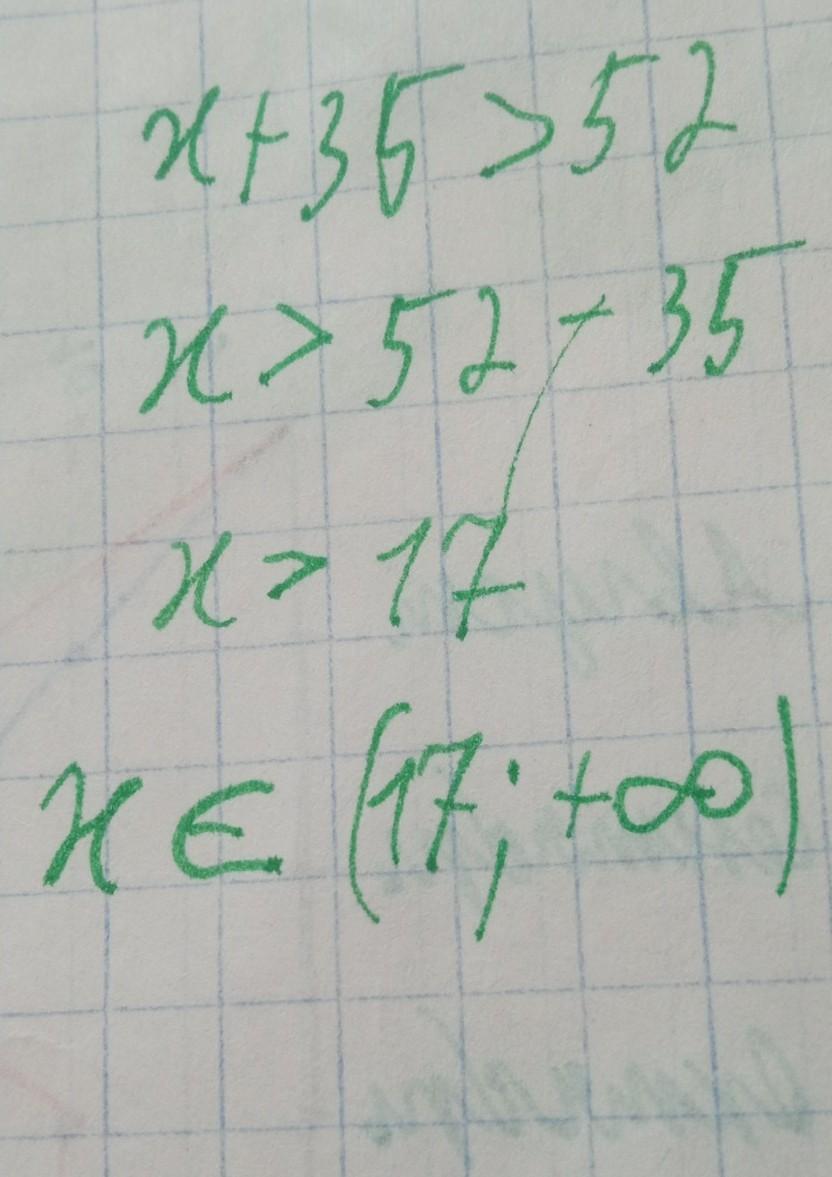 x+35>52
x>52-35
x>17
x∈(17;+∞)